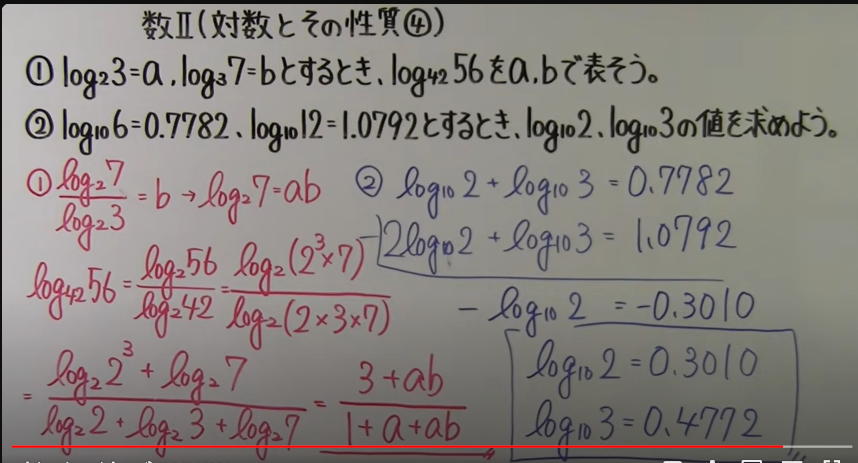 数Ⅱ(対数とその性質④)
① log₂3=a、log₃7=bとするとき、log₄₂56をa、bで表そう。
② log₁₀6=0.7782、log₁₀12=1.0792とするとき、log₁₀2、log₁₀3の値を求めよう。
① log₂7/log₂3 = b → log₂7=ab
log₄₂56 = log₂56/log₂42 = log₂(2³×7)/log₂(2×3×7)
= (log₂2³ + log₂7)/(log₂2 + log₂3 + log₂7) = (3+ab)/(1+a+ab)
② log₁₀2 + log₁₀3 = 0.7782
-) 2log₁₀2 + log₁₀3 = 1.0792
- log₁₀2 = -0.3010
log₁₀2 = 0.3010
log₁₀3 = 0.4772